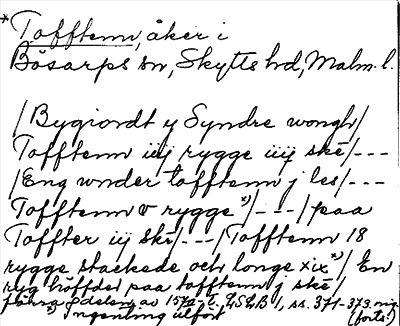 *Tofftenn, åker i
Bösarps sn, Skytts hd, Malm.l.
/Bygiordt y Syndre wongh/
Tofftenn iiij rygge iiij ske/---
/Eng wnder tofftenn j les/---
Tofftenn v rygge x)/---/paa
Toffter iij ske/---/Tofftenn 18
rygge stackede och longe xix x)/ En
ryg höffder paa tofftenn j ske/
av 1570-t. LSLB 1, ss. 371-373. nio
x) Ingenting utfört (forts.)